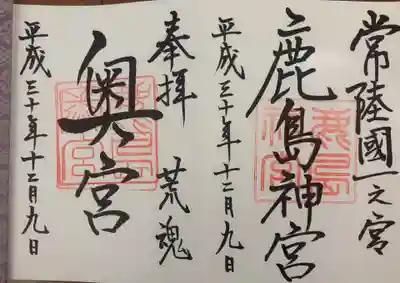 常陸國一之宮
鹿島神宮
平成三十年十二月九日
奉拝 荒魂
奥宮
平成三十年十二月九日